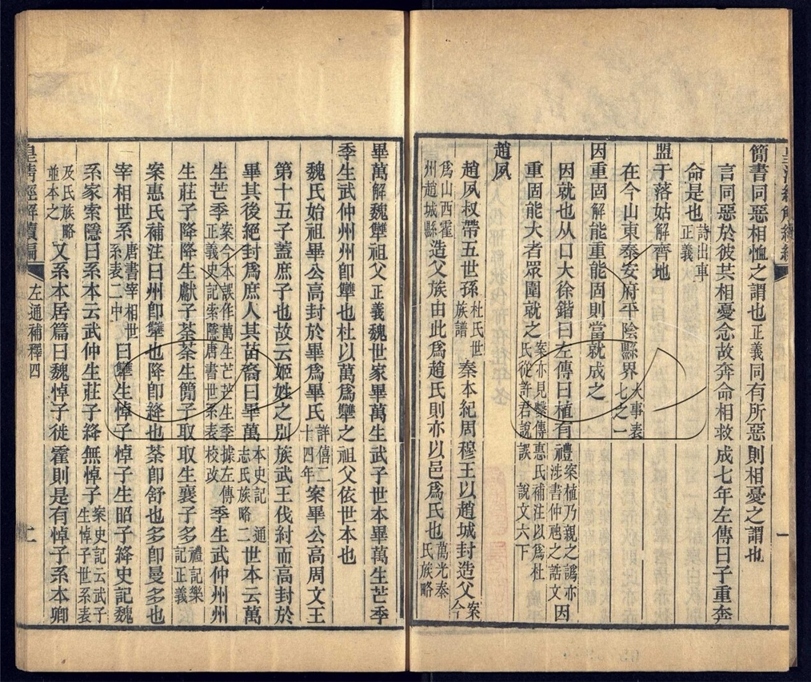 簡書同惡相恤之謂也正義同有所惡則相憂之謂也
言同惡於彼共相憂念故奔命相救成七年左傳曰子重奔
命是也詩出車正義
盟于落姑解齊地
在今山東泰安府平陰縣界大事表七之一
因重固解能重能固則當就成之
因就也从口大徐鍇曰左傳曰植有禮案植乃親之譌亦涉書仲虺之誥文因
重固能大者眾圍就之案亦見槩傳惠氏補注以為杜氏從許君說誤 說文六下
趙夙
趙夙叔帶五世孫杜氏世族譜秦本紀周穆王以趙城封造父案今
為山西霍州趙城縣造父族由此為趙氏則亦以邑為氏也萬光泰氏族略
畢萬解魏犨祖父正義魏世家畢萬生武子世本畢萬生芒季
季生武仲州州卽犨也杜以萬為犨之祖父依世本也
魏氏始祖畢公高封於畢為畢氏詳僖二十四年案畢公高周文王
第十五子蓋庶子也故云姬姓之別族武王伐紂而高封於
畢其後絕封為庶人其苗裔曰畢萬本史記 通志氏族略二世本云萬
生芒季案今本誤作萬生芒芒生季據左傳正義史記索隱唐書世系表校改季生武仲州州
生莊子降降生獻子荼荼生簡子取取生襄子多禮記樂記正義
案惠氏補注曰州卽犨也降卽絳也荼卽舒也多卽曼多也
宰相世系唐書宰相世系表二中曰犨生悼子悼子生昭子絳史記魏
系家索隱曰系本云武仲生莊子絳無悼子案史記云武子生悼子世系表
及氏族略並本之又系本居篇曰魏悼子徙霍則是有悼子系本卿
皇清經解續編
左通補釋四